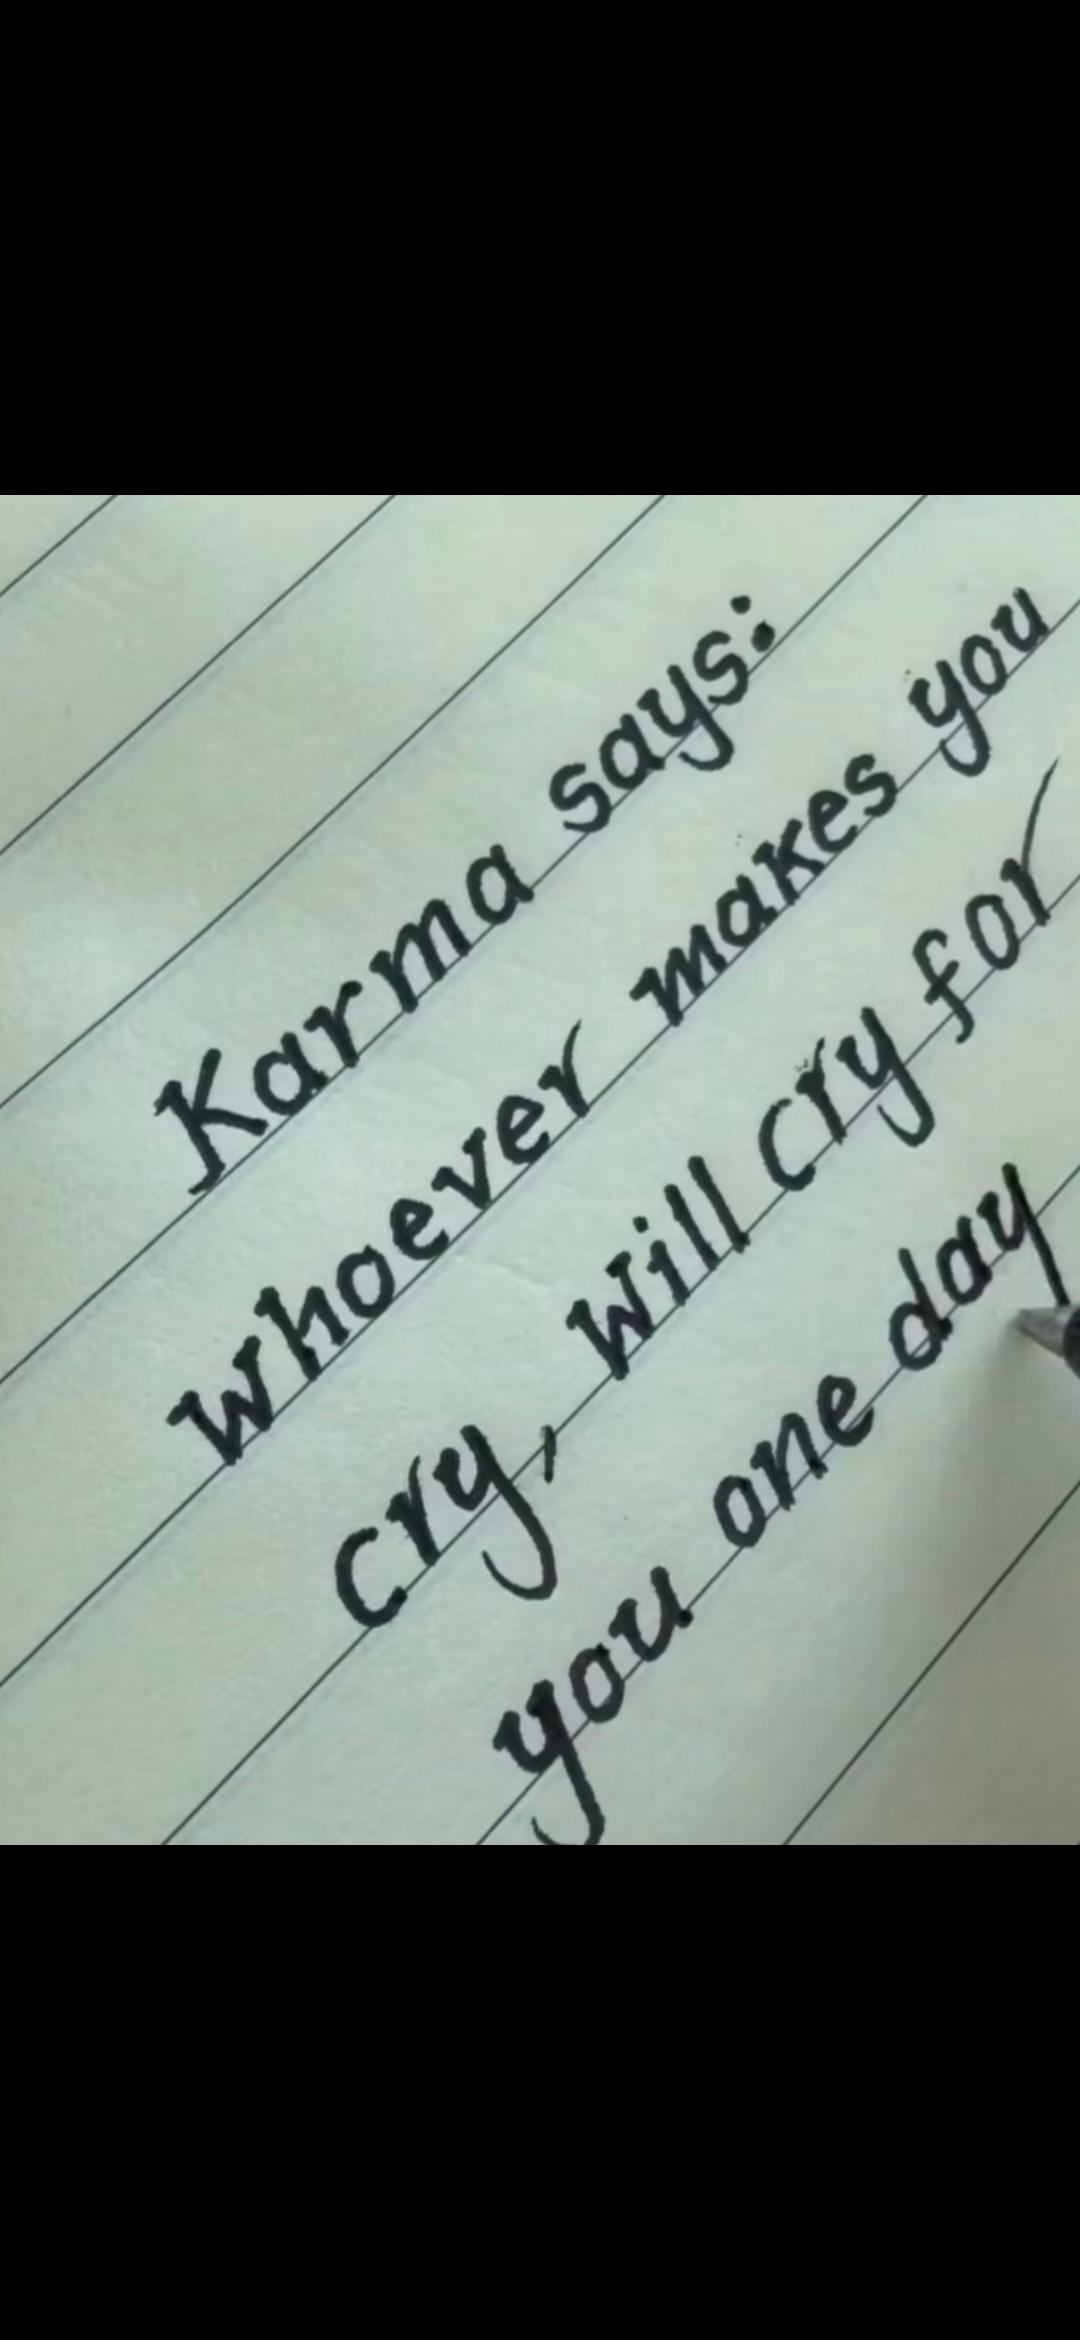 Karma says:
Whoever makes you
cry, will cry for
you one day